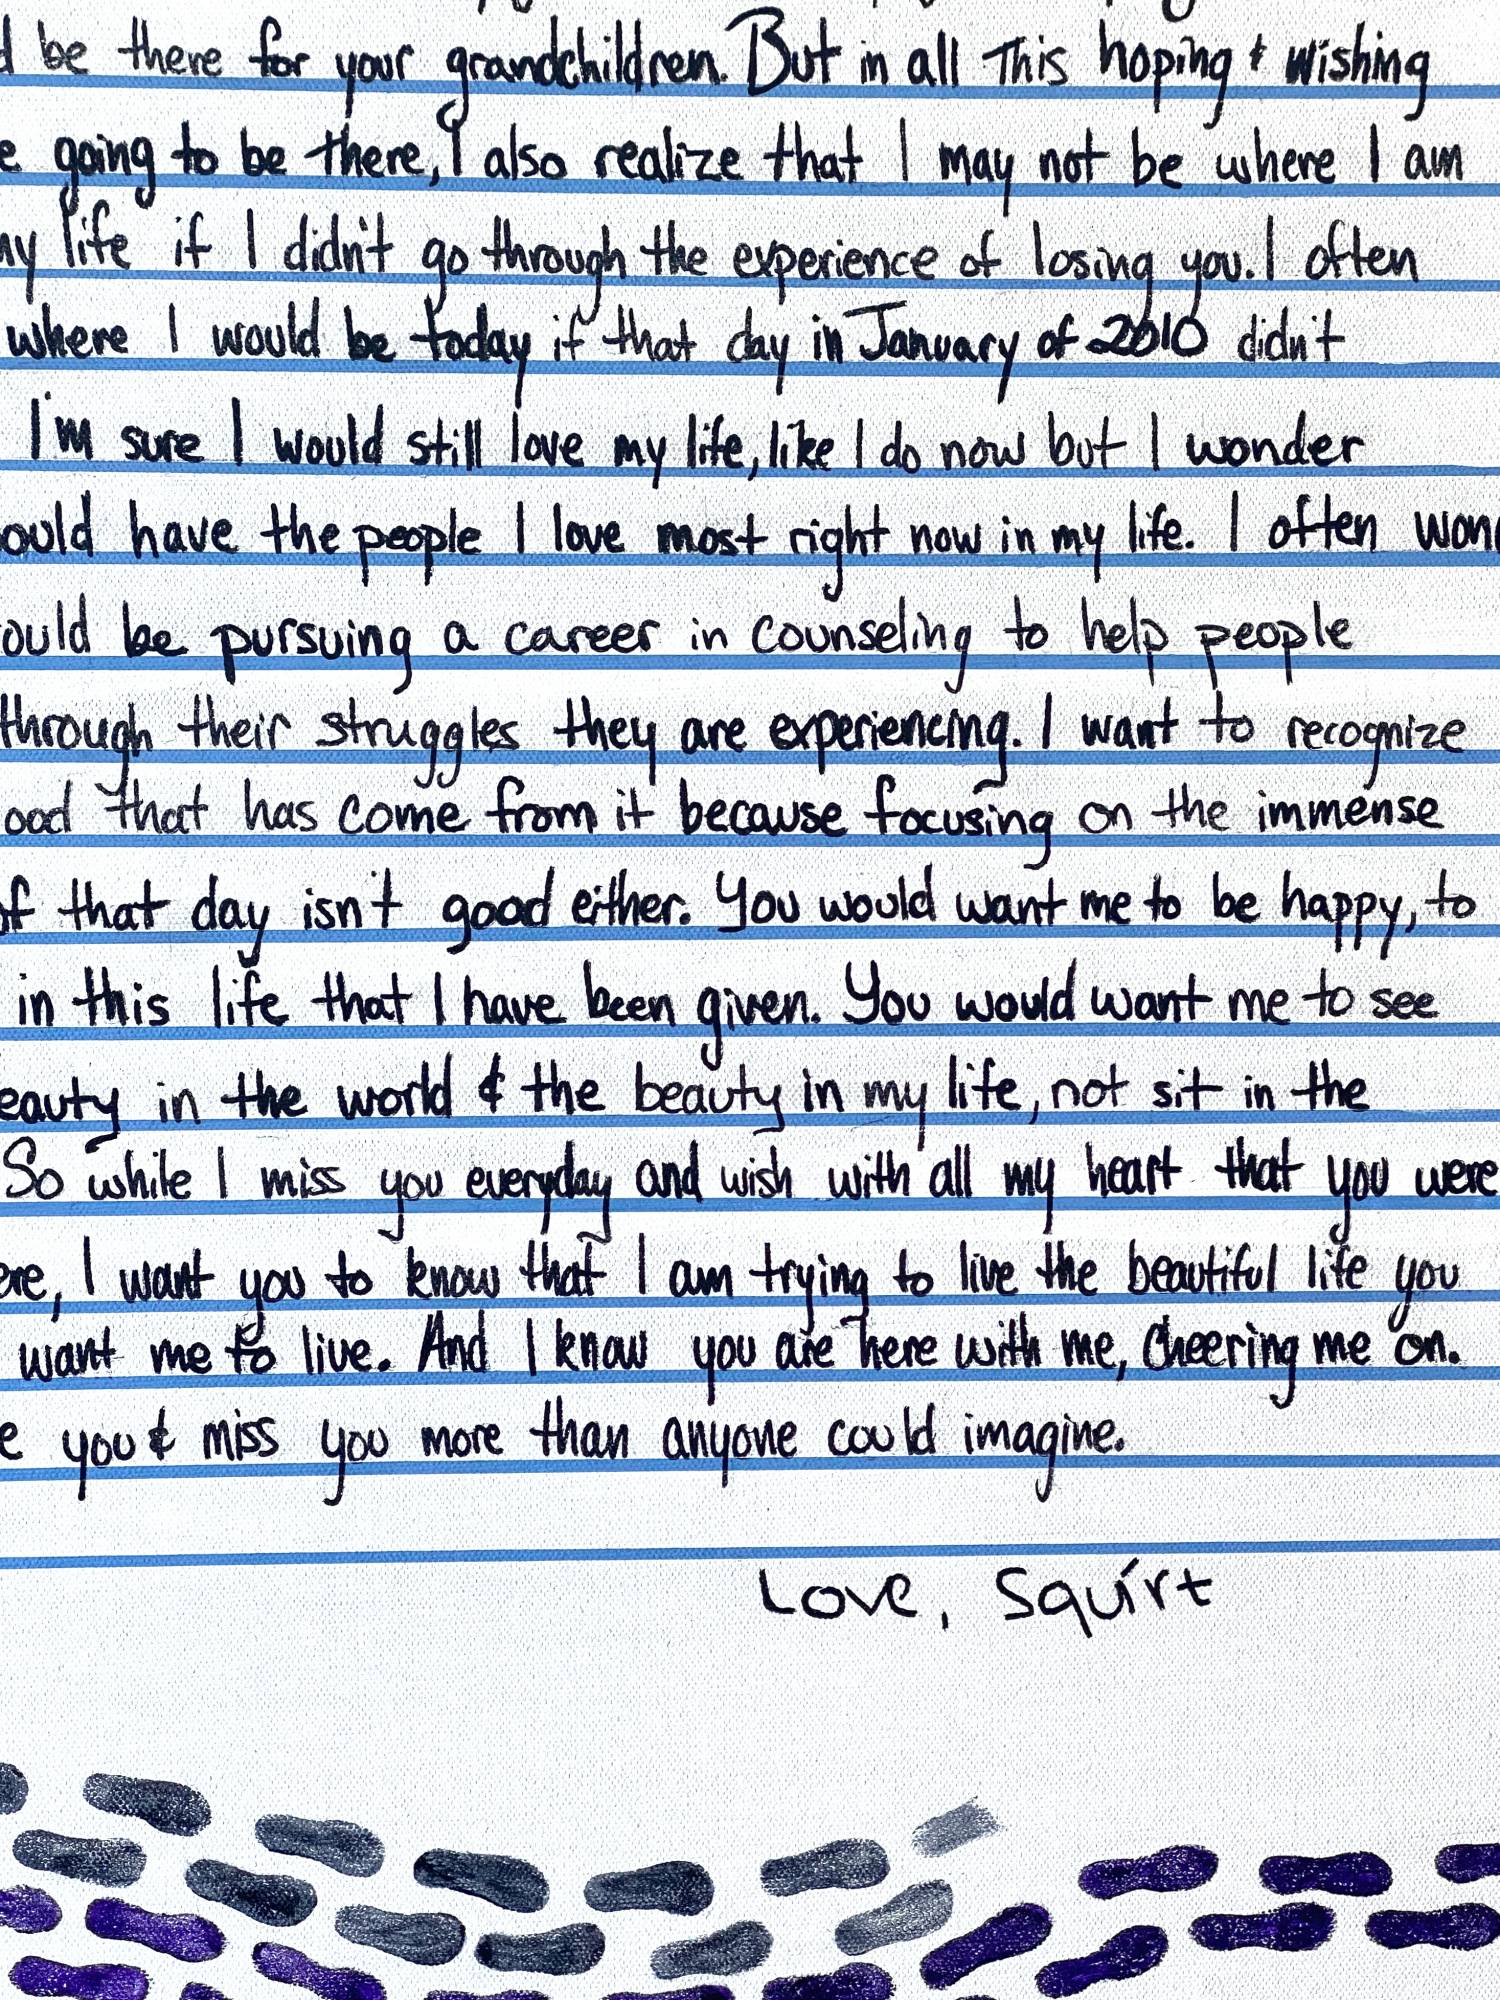 be there for your grandchildren. But in all This hoping & wishing
going to be there, I also realize that I may not be where I am
life if I didn't go through the experience of losing you. I often
where I would be today if that day in January of 2010 didn't
I'm sure I would still love my life, like I do now but I wonder
ould have the people I love most right now in my life. I often won
ould be pursuing a career in counseling to help people
through their struggles they are experiencing. I want to recognize
ood that has come from it because focusing on the immense
of that day isn't good either. You would want me to be happy, to
in this life that I have been given. You would want me to see
eauty in the world & the beauty in my life, not sit in the
So while I miss you everyday and wish with all my heart that you were
ere, I want you to know that I am trying to live the beautiful life you
want me to live. And I know you are here with me, cheering me on.
e you & miss you more than anyone could imagine.
Love, Squirt